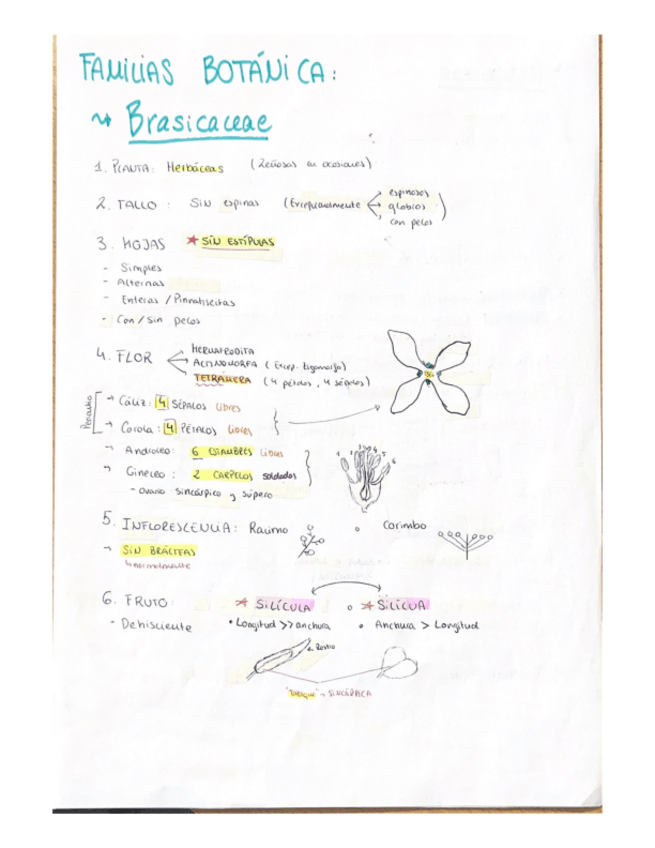 FAMILIAS BOTÁNICA:
↝ Brasicaceae
1. PLANTA: Herbáceas (Leñosas en ocasiones)
2. TALLO: Sin espinas (Excepcionalmente
espinosos
glabros
con pelos)
3. HOJAS ★ SIN ESTÍPULAS
- Simples
- Alternas
- Enteras / Pinnatisectas
- Con / Sin pelos
4. FLOR
HERMAFRODITA
ACTINOMORFA (Excep. zigomorfa)
TETRÁMERA (4 pétalos, 4 sépalos)
Periantio
→ Cáliz: 4 SÉPALOS libres
→ Corola: 4 PÉTALOS libres
→ Androceo: 6 ESTAMBRES libres
→ Gineceo: 2 CARPELOS soldados
- Ovario sincárpico y súpero
1 2 3 4 5 6
5. INFLORESCENCIA: Racimo o Corimbo
→ SIN BRÁCTEAS
↳ normalmente
6. FRUTO: ★ SILÍCULA o ★ SILICUA
- Dehisciente • Longitud >> anchura • Anchura > Longitud
Rostro
→ SINCÁRPICA